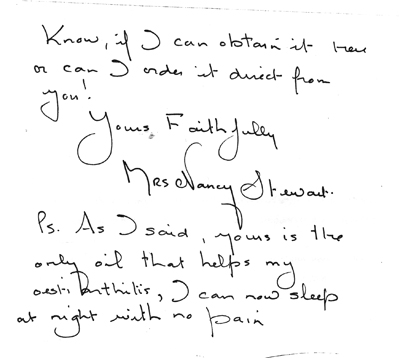 Know, if I can obtain it here
or can I order it direct from
you!
Yours Faithfully
Mrs Nancy Stewart.
Ps. As I said, yours is the
only oil that helps my
arthritis, I can now sleep
at night with no pain